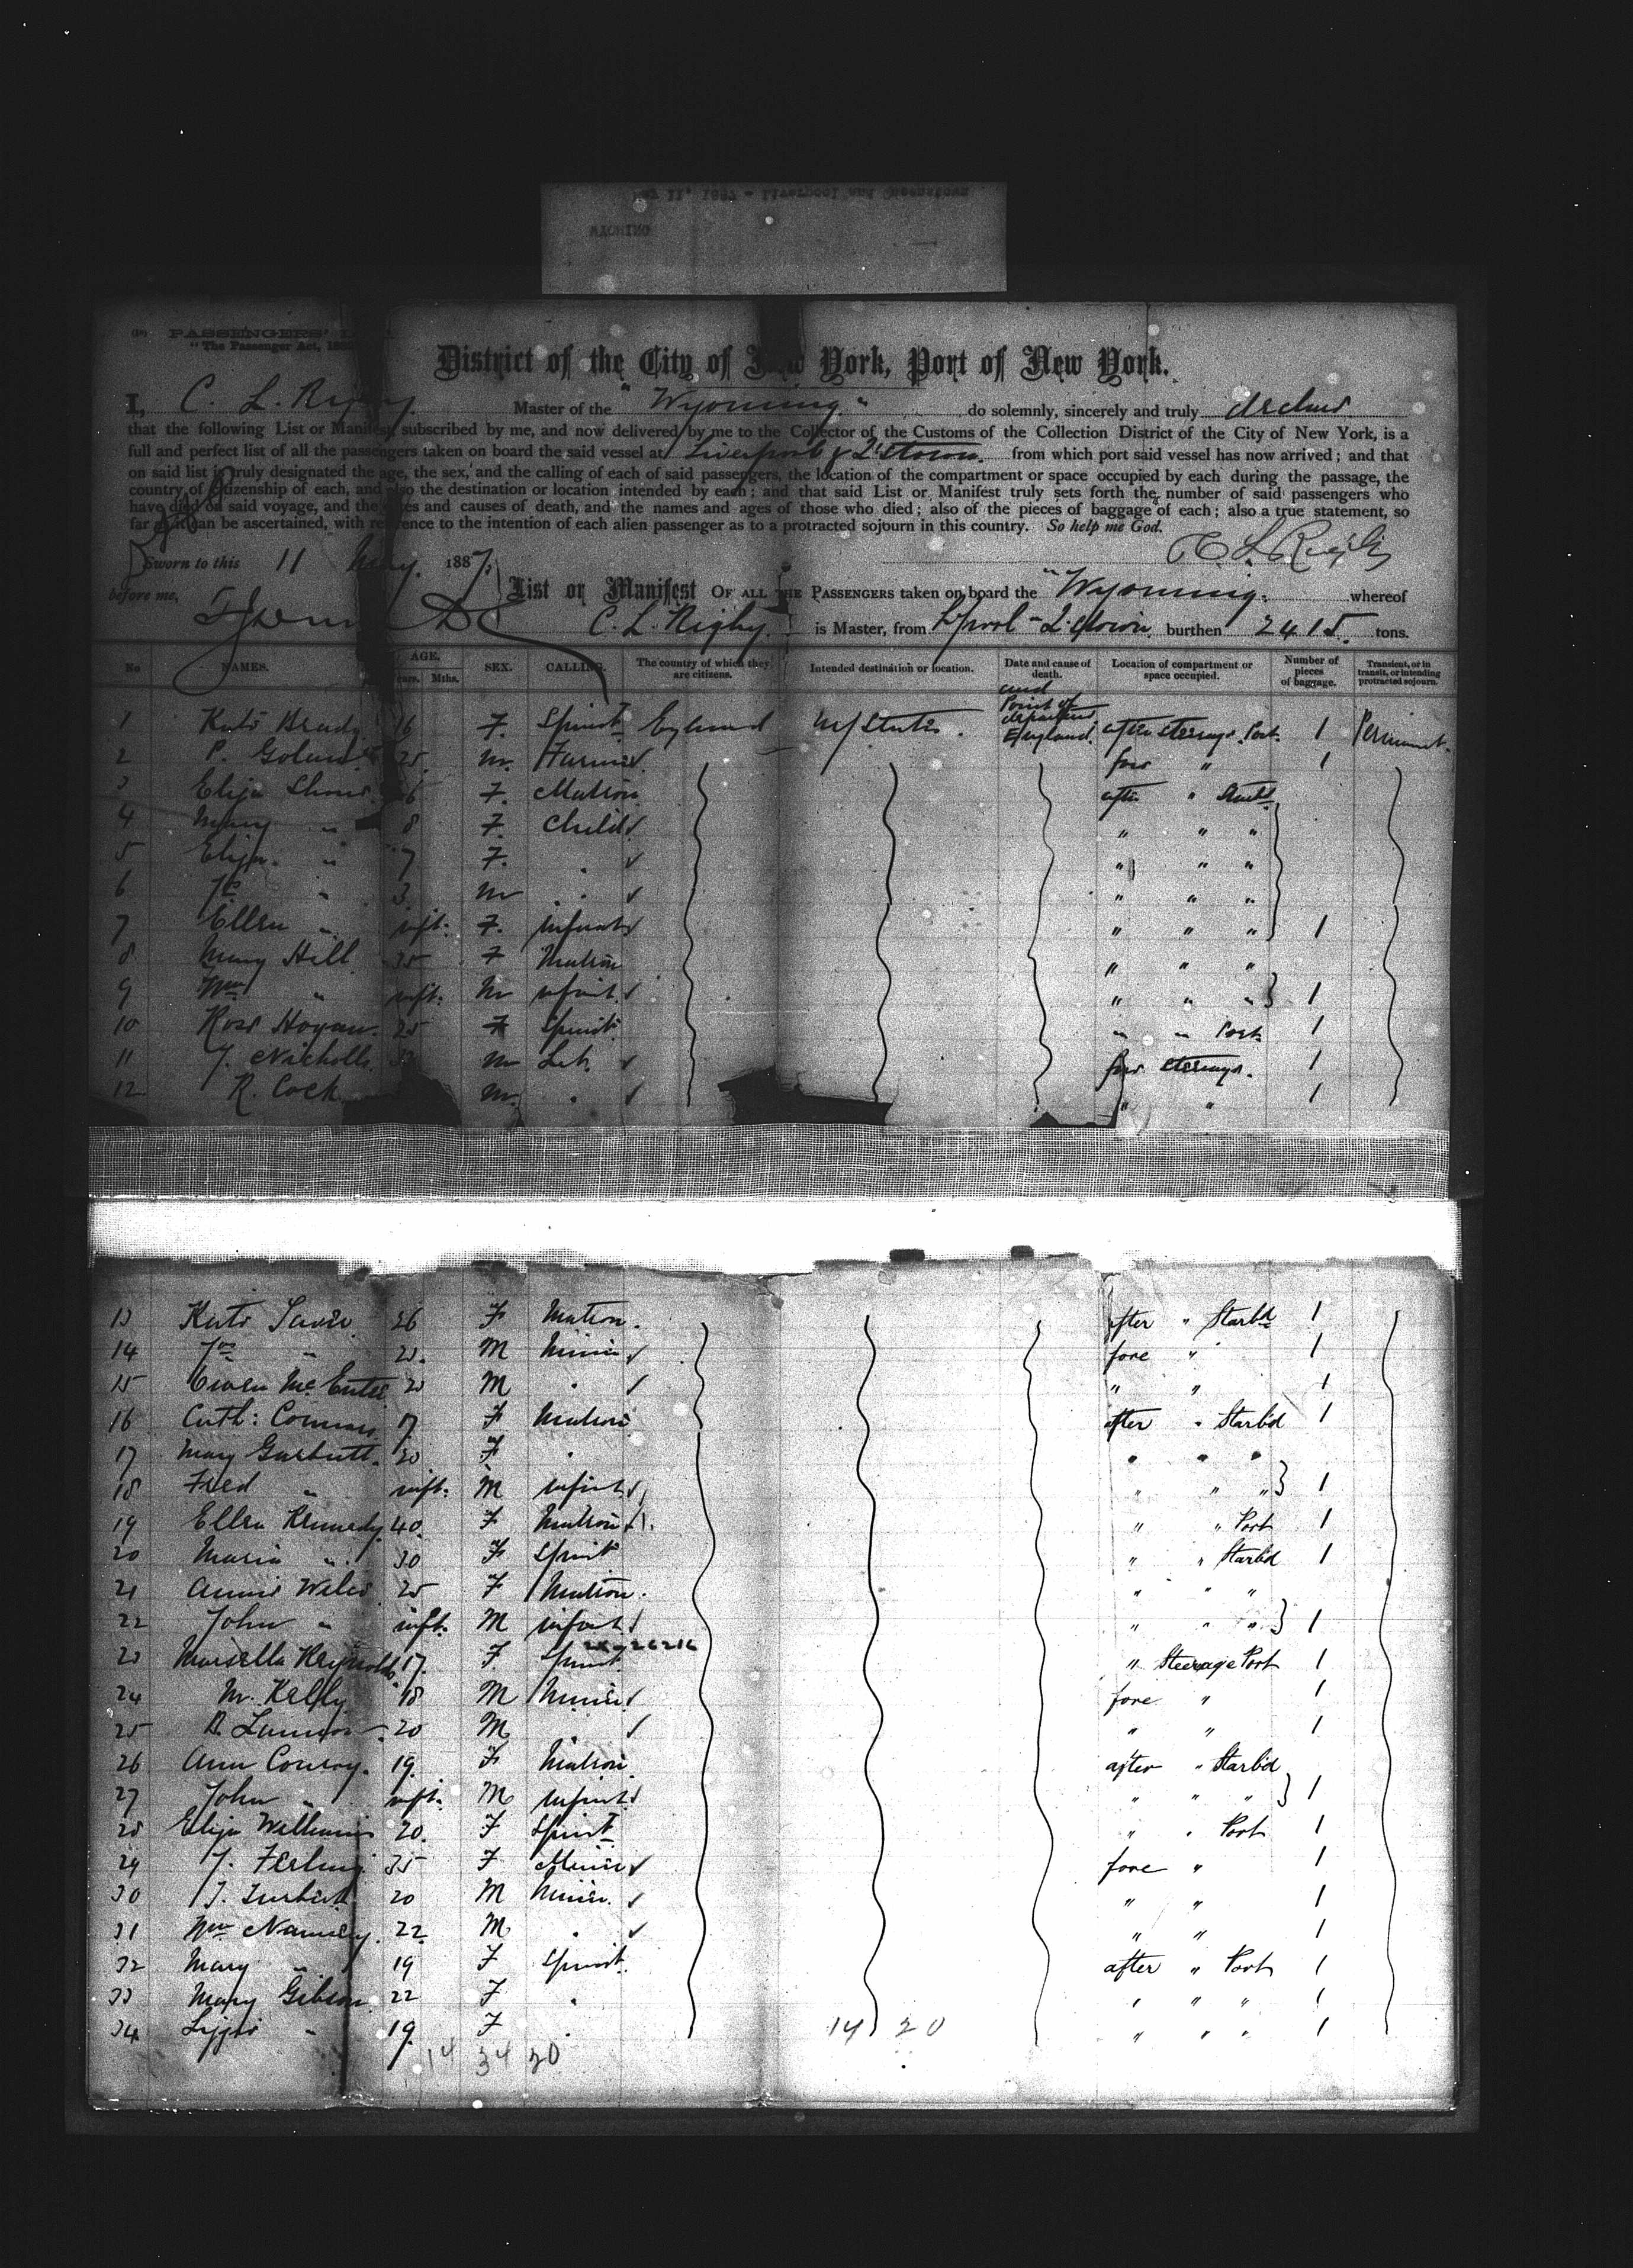 PASSENGERS'
"The Passenger Act, 188
District of the City of New York, Port of New York.
I, C. L. Rigby Master of the "Wyoming" do solemnly, sincerely and truly declare
that the following List or Manifest, subscribed by me, and now delivered by me to the Collector of the Customs of the Collection District of the City of New York, is a
full and perfect list of all the passengers taken on board the said vessel at Liverpool & Q'stown. from which port said vessel has now arrived; and that
on said list is truly designated the age, the sex, and the calling of each of said passengers, the location of the compartment or space occupied by each during the passage, the
country of citizenship of each, and also the destination or location intended by each; and that said List or Manifest truly sets forth the number of said passengers who
have died on said voyage, and the dates and causes of death, and the names and ages of those who died; also of the pieces of baggage of each; also a true statement, so
far as it can be ascertained, with reference to the intention of each alien passenger as to a protracted sojourn in this country. So help me God.
C. L. Rigby
Sworn to this 11 May. 1887.
before me,
List or Manifest OF ALL THE PASSENGERS taken on board the "Wyoming" whereof
C. L. Rigby. is Master, from L'pool - Q'stown, burthen 2415. tons.
No NAMES. AGE. Years. Mths. SEX. CALLING. The country of which they are citizens. Intended destination or location. Date and cause of death. and Point of departure Location of compartment or space occupied. Number of pieces of baggage. Transient, or in transit, or intending protracted sojourn.
1 Kate Brady 16 F. Spinst England U/States. England. after steerage Port. 1 Permanent.
2 P. 25. M. Farmer fore " 1
3 Eliza F. Matron after " Starbd
4 Mary " 8 F. Child " " "
5 Eliza. " 7 F. . " " "
6 " 3. M . " " "
7 Ellen " inft. F. infant " " " 1
8 Mary Hill 35 F Matron " " "
9 Wm " inft. M infant. " " " 1
10 Rose Hogan. 25 F Spinst. " " Port. 1
11 J. Nicholls M Lab. fore steerage. 1
12 R. Cock M. . " " 1
13 Kate 26 F Matron. after " Starbd 1
14 Jno " M Miner fore " 1
15 Owen McEntee M . " " 1
16 Cath: 17. F Matron after " Starbd 1
17 Mary Garbutt. 20 F . " " "
18 Fred " inft. M infant " " " 1
19 Ellen Kennedy 40. F Matron " " Port 1
20 Maria " 30 F Spinst " " Starbd 1
21 Annie 25 F Matron. " " "
22 John " inft. M infant " " " 1
23 Marsella Reynolds 17. F. Spinst. " Steerage Port 1
24 M. Kelly 18 M Miner fore " 1
25 20 M . " " 1
26 Ann Conroy. 19. F Matron. after " Starbd
27 John " inft. M infant " " " 1
28 Eliza Williams 20. F Spinst " " Port 1
29 J. 35 F Miner fore " 1
30 J. 20 M Miner. " " 1
31 Wm 22. M . " " 1
32 Mary " 19 F Spinst. after " Port 1
33 Mary Gibson. 22 F . " " " 1
34 Lizzie " 19. F . 14 20 " " " 1
14 34 20